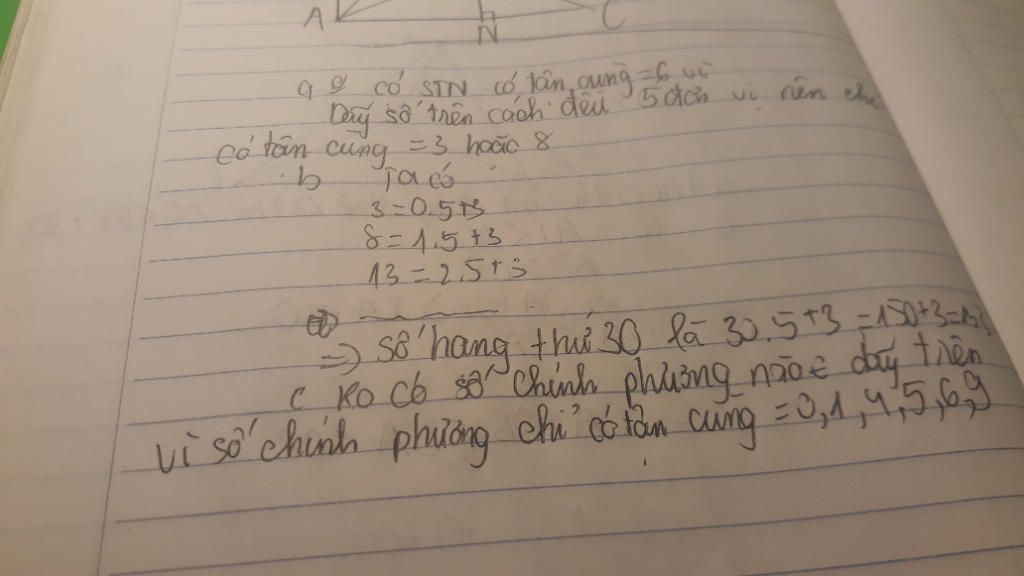 A N C
a có STN có tận cùng = 6 vì
Dãy số trên cách đều 5 đơn vị nên chỉ
có tân cùng = 3 hoăc 8
b Ta có
3 = 0.5+3
8 = 1.5+3
13 = 2.5+3
=> số hang thứ 30 là 30.5+3 = 150+3=153
c Ko có số chính phương nào ∈ dãy trên
vì số chính phương chỉ có tân cùng = 0,1,4,5,6,9